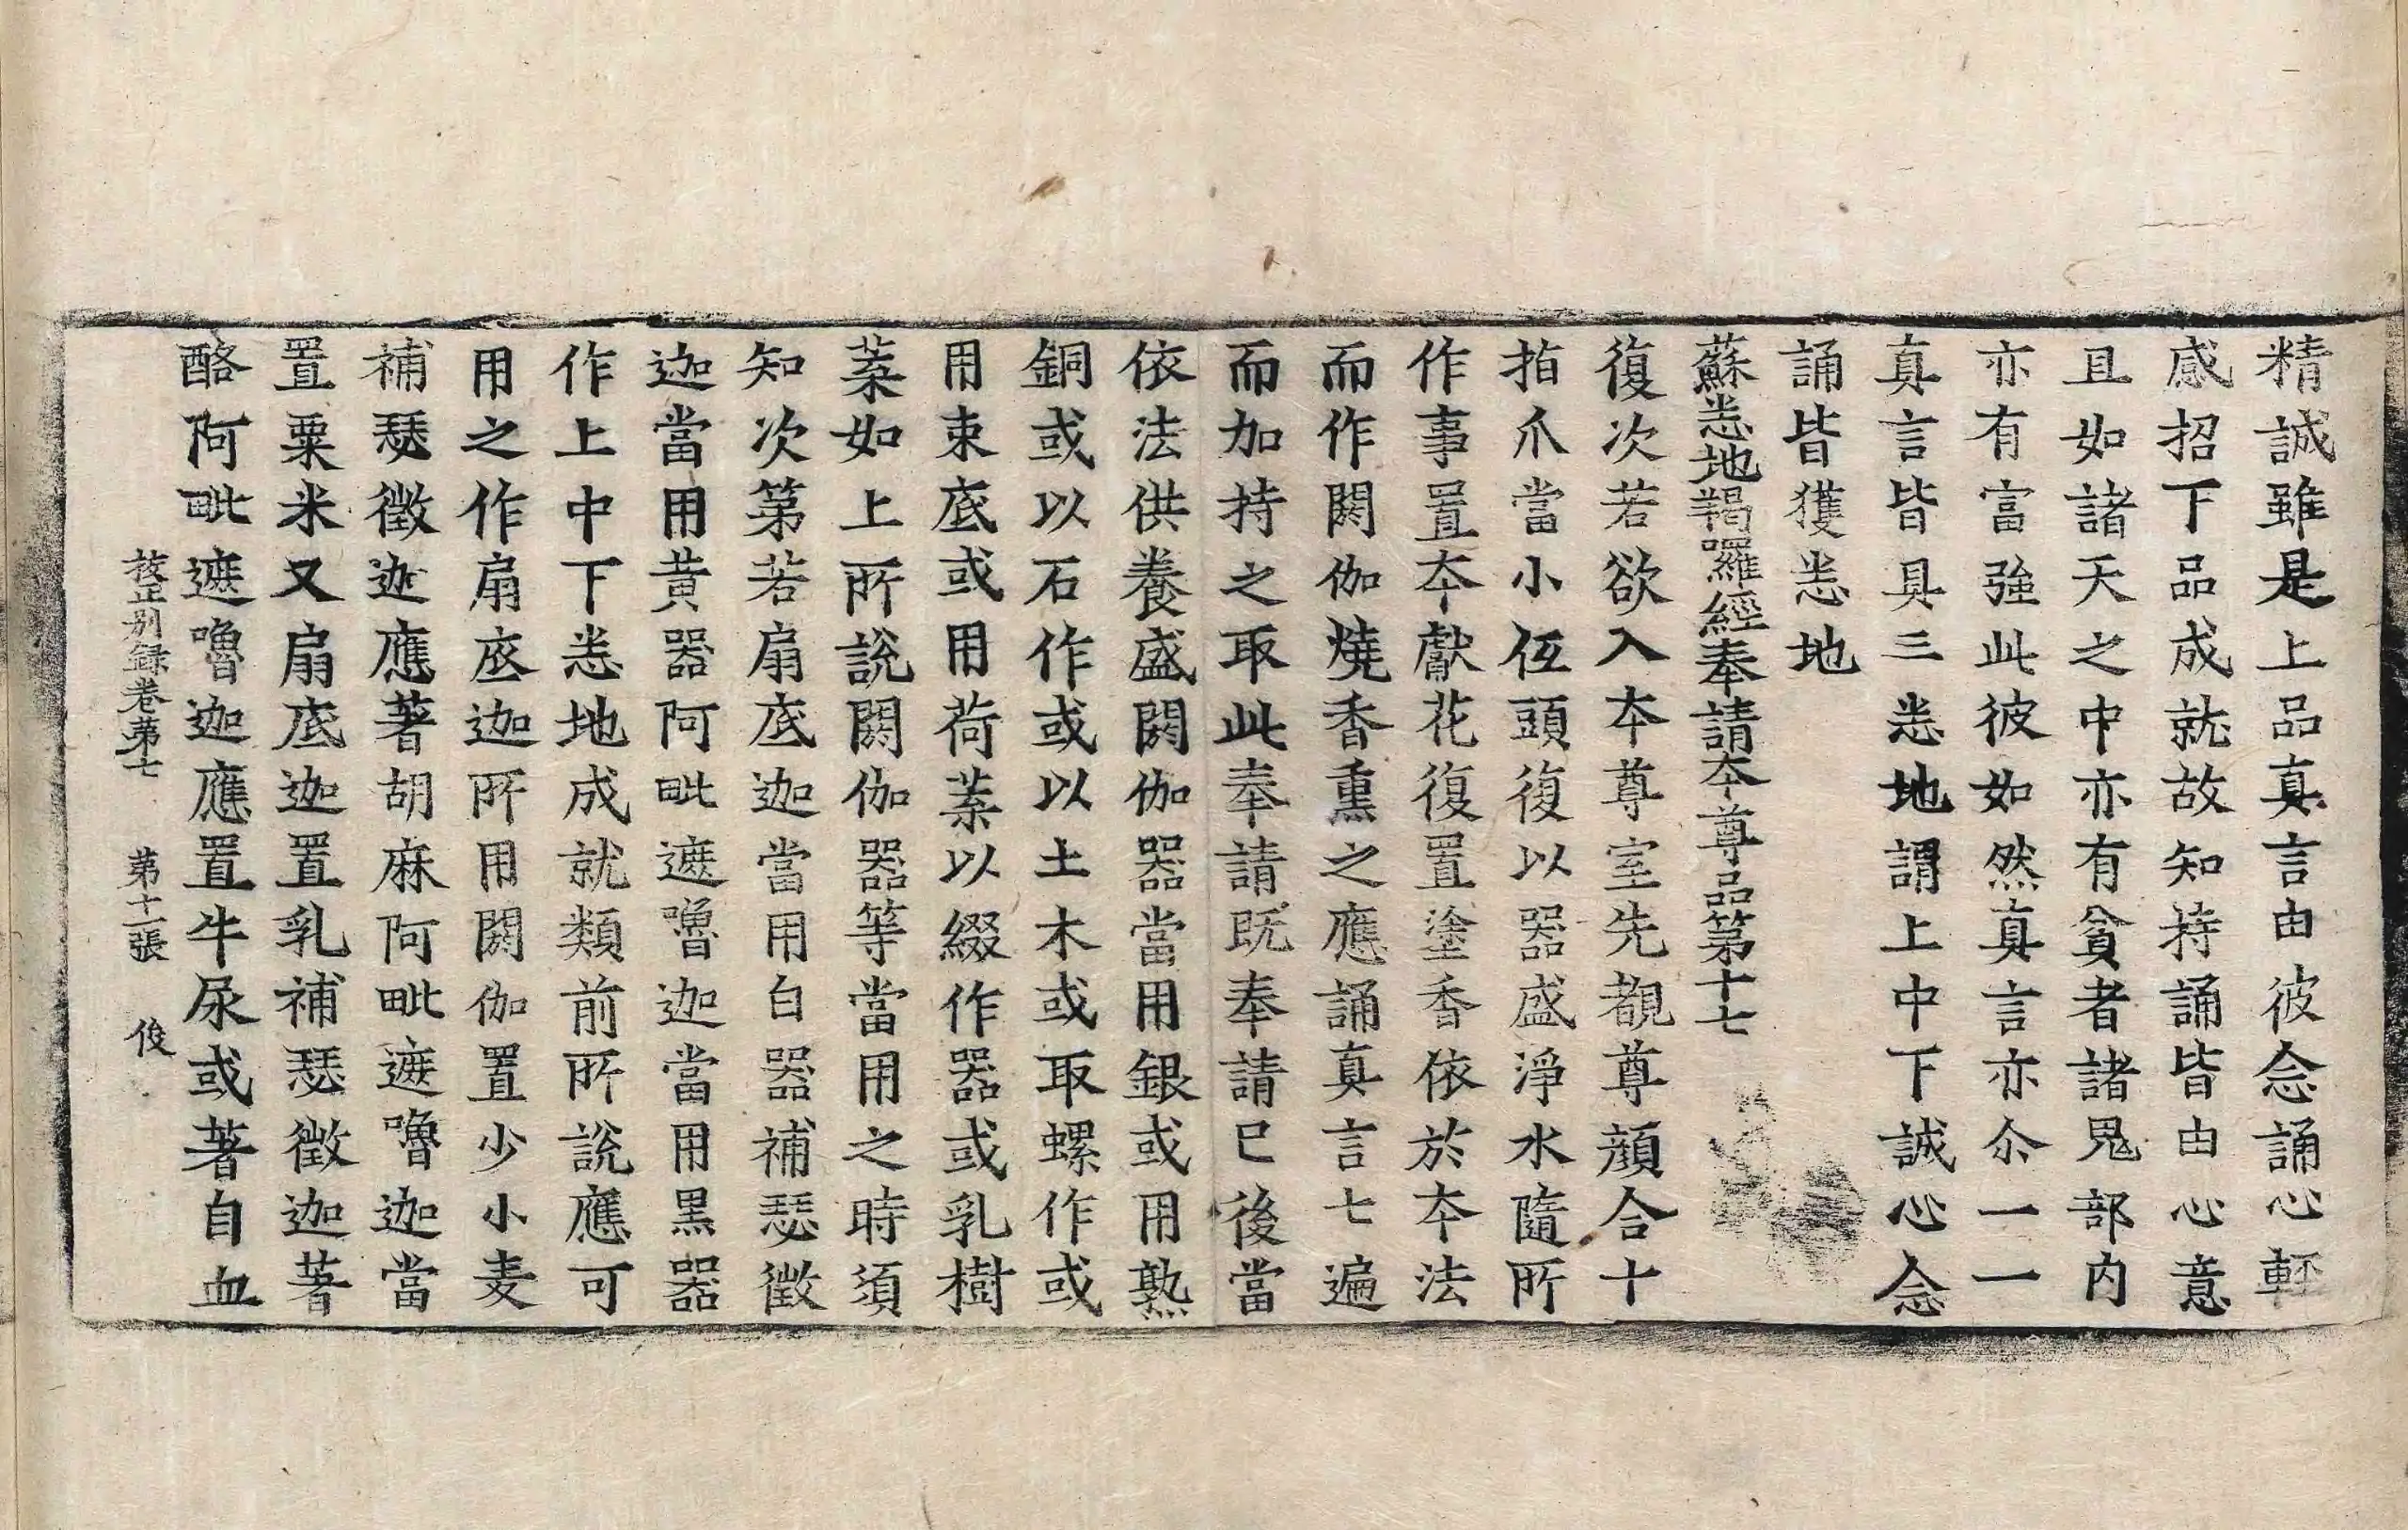 精誠雖是上品真言由彼念誦心輕
感招下品成就故知持誦皆由心意
且如諸天之中亦有貧者諸鬼部內
亦有富強此彼如然真言亦尒一一
真言皆具三悉地謂上中下誠心念
誦皆獲悉地
蘇悉地羯囉經奉請本尊品第十七
復次若欲入本尊室先覩尊顏合十
指爪當小伍頭復以器盛淨水隨所
作事置本獻花復置塗香依於本法
而作閼伽燒香熏之應誦真言七遍
而加持之取此奉請既奉請已後當
依法供養盛閼伽器當用銀或用熟
銅或以石作或以土木或取螺作或
用束底或用荷葉以綴作器或乳樹
葉如上所說閼伽器等當用之時須
知次第若扇底迦當用白器補瑟徵
迦當用黃器阿毗遮嚕迦當用黑器
作上中下悉地成就類前所說應可
用之作扇底迦所用閼伽置少小麦
補瑟徵迦應著胡麻阿毗遮嚕迦當
置粟米又扇底迦置乳補瑟徵迦著
酪阿毗遮嚕迦應置牛尿或著自血
挍正別録卷苐七　苐十一張　俊